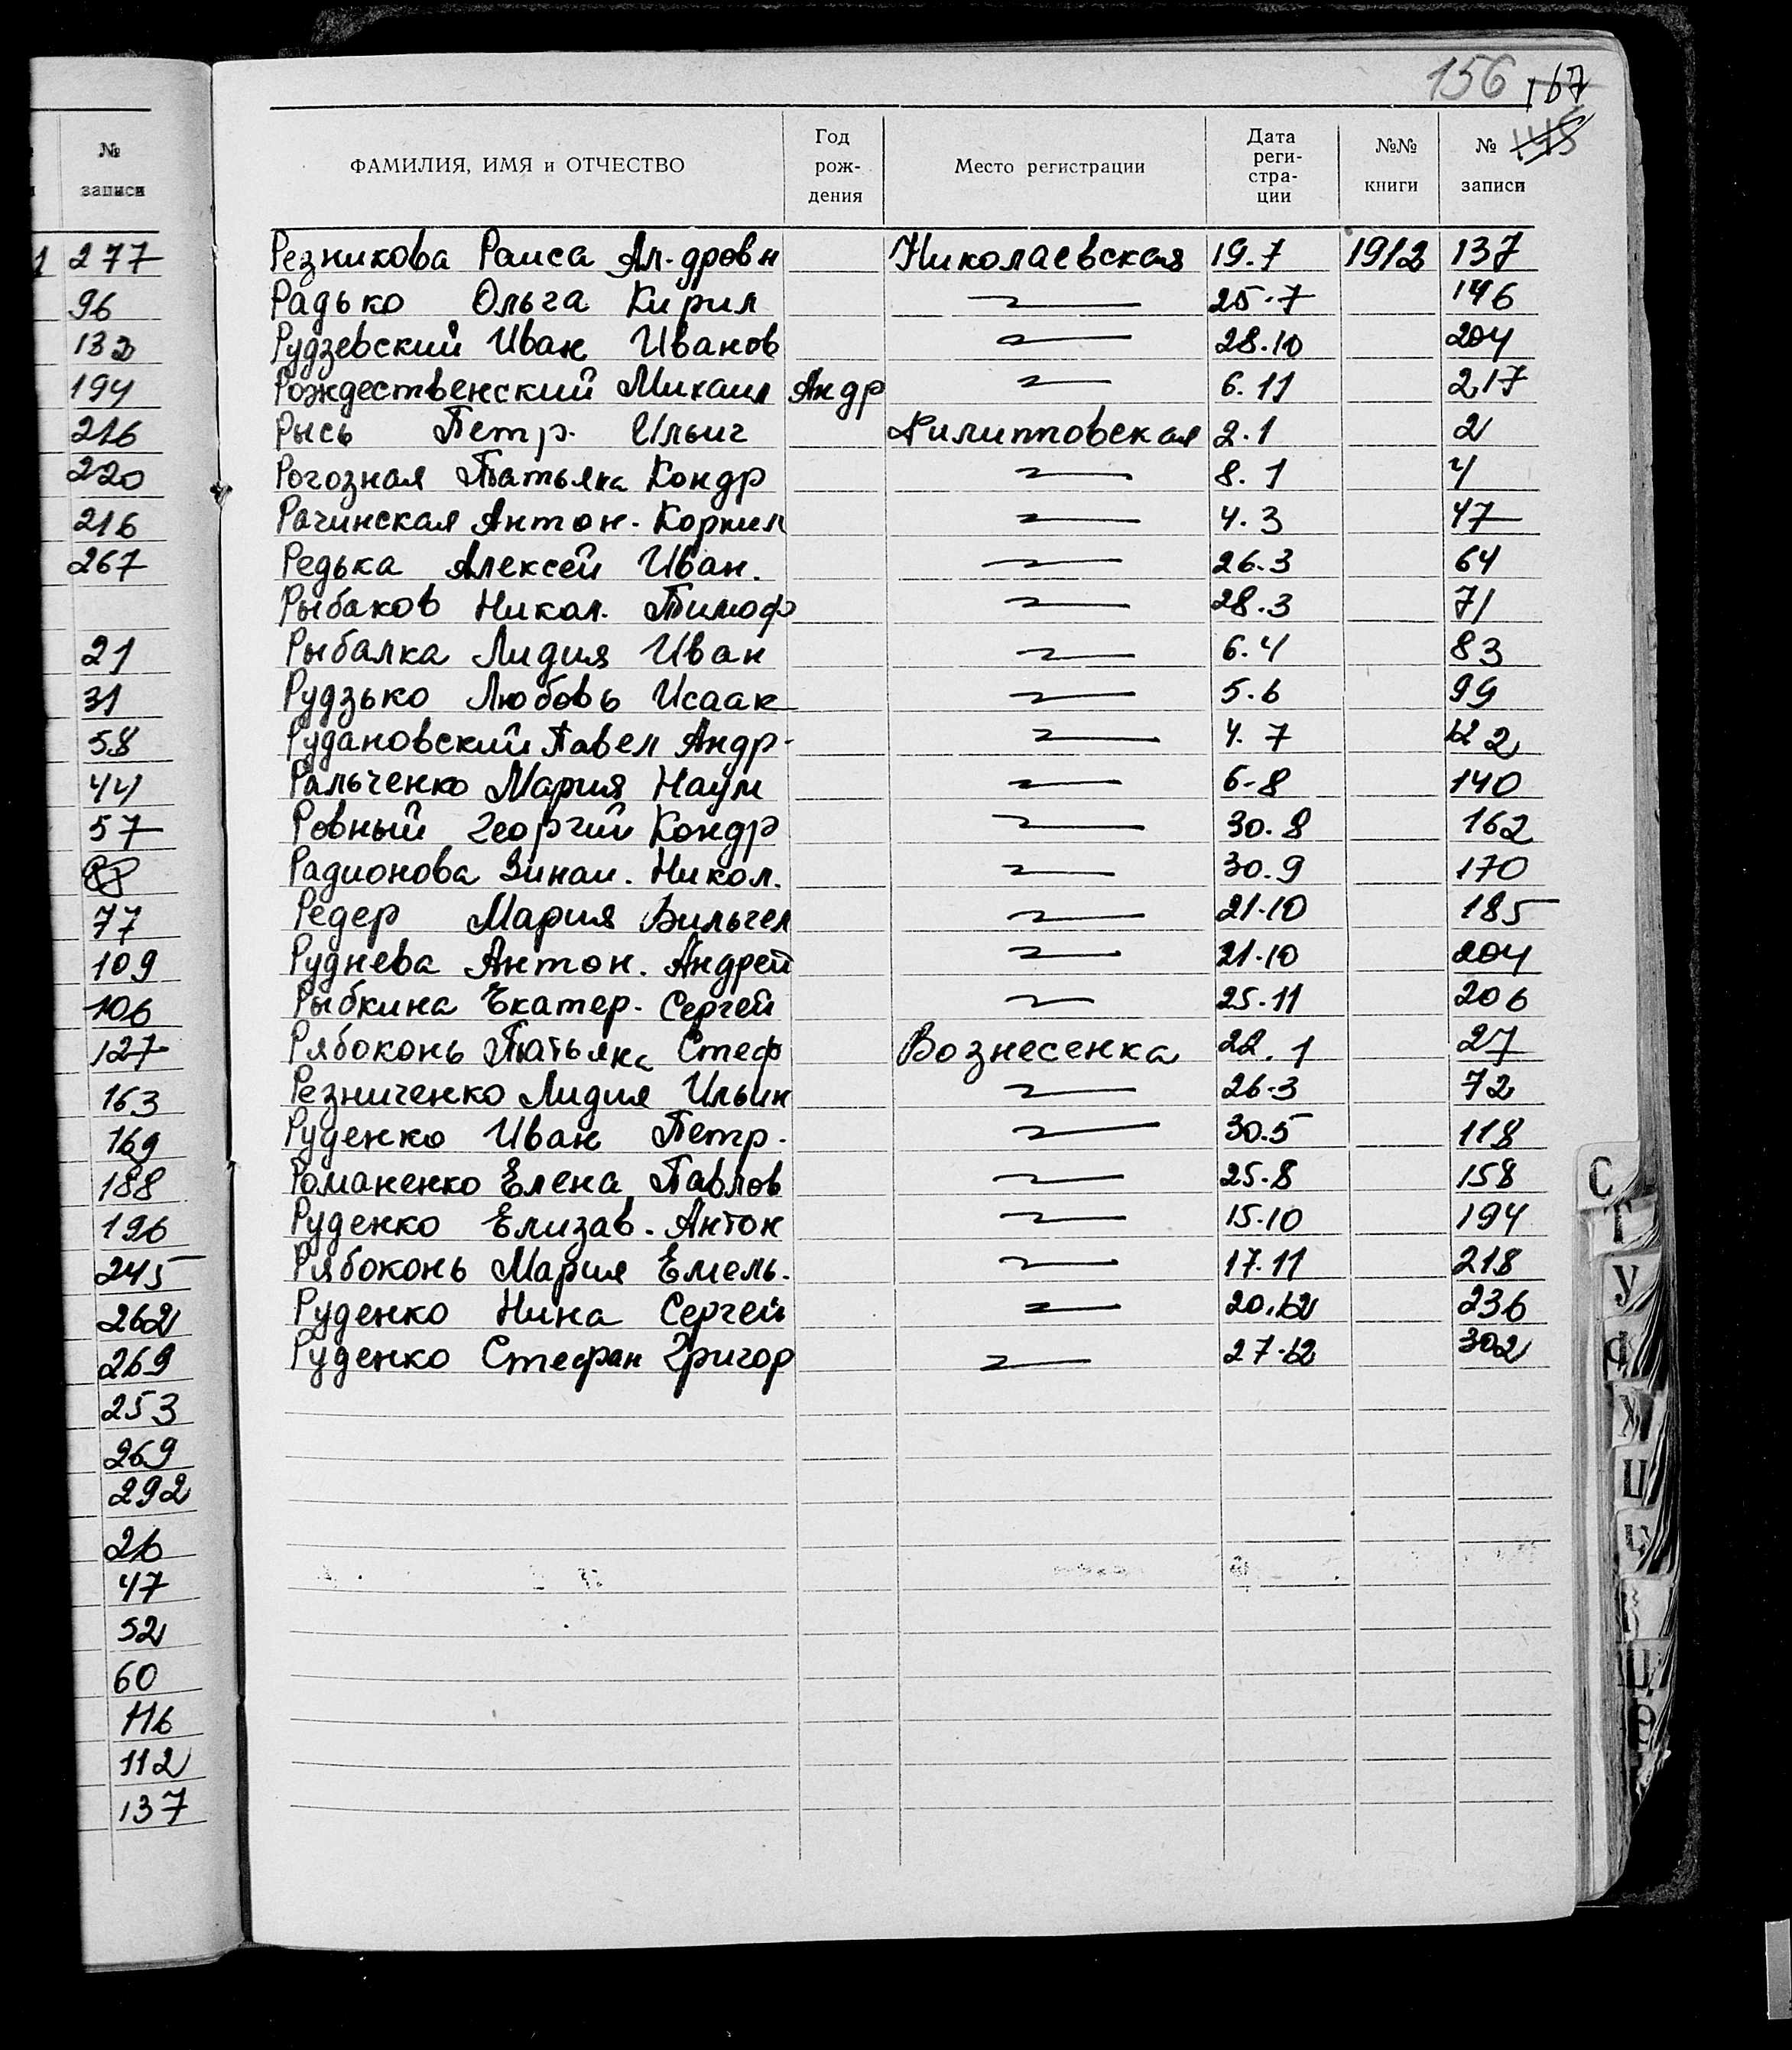 №
записи
277
96
132
194
216
220
216
267
21
31
58
44
57
77
109
106
127
163
169
188
196
245
262
269
253
269
292
26
47
52
60
116
112
137
156 167
145
ФАМИЛИЯ, ИМЯ и ОТЧЕСТВО Год рож- дения Место регистрации Дата реги- стра- ции №№ книги № записи
Резникова Раиса Ал-дровн Николаевская 19.7 1912 137
Радько Ольга Кирил —"— 25.7 146
Рудзевский Иван Иванов —"— 28.10 204
Рождественский Михаил Андр —"— 6.11 217
Рысь Петр. Ильич Филипповская 2.1 2
Рогозная Татьяна Кондр —"— 8.1 4
Рачинская Антон. Корнил —"— 4.3 47
Редька Алексей Иван. —"— 26.3 64
Рыбаков Никол. Тимоф —"— 28.3 71
Рыбалка Лидия Иван —"— 6.4 83
Рудзько Любовь Исаак —"— 5.6 99
Рудановский Павел Андр- —"— 4.7 122
Ральченко Мария Наум —"— 6-8 140
Ровный Георгий Кондр —"— 30.8 162
Радионова Зинаи. Никол. —"— 30.9 170
Редер Мария Вильгел —"— 21.10 185
Руднева Антон. Андрей —"— 21.10 204
Рыбкина Екатер. Сергей —"— 25.11 206
Рябоконь Татьяна Стеф Вознесенка 22.1 27
Резниченко Лидия Ильин —"— 26-3 72
Руденко Иван Петр. —"— 30.5 118
Романенко Елена Павлов —"— 25.8 158
Руденко Елизав. Антон —"— 15.10 194
Рябоконь Мария Емель. —"— 17.11 218
Руденко Нина Сергей —"— 20.12 236
Руденко Стефан Григор —"— 27.12 302
С
Т
У
Ф
Х
Ц